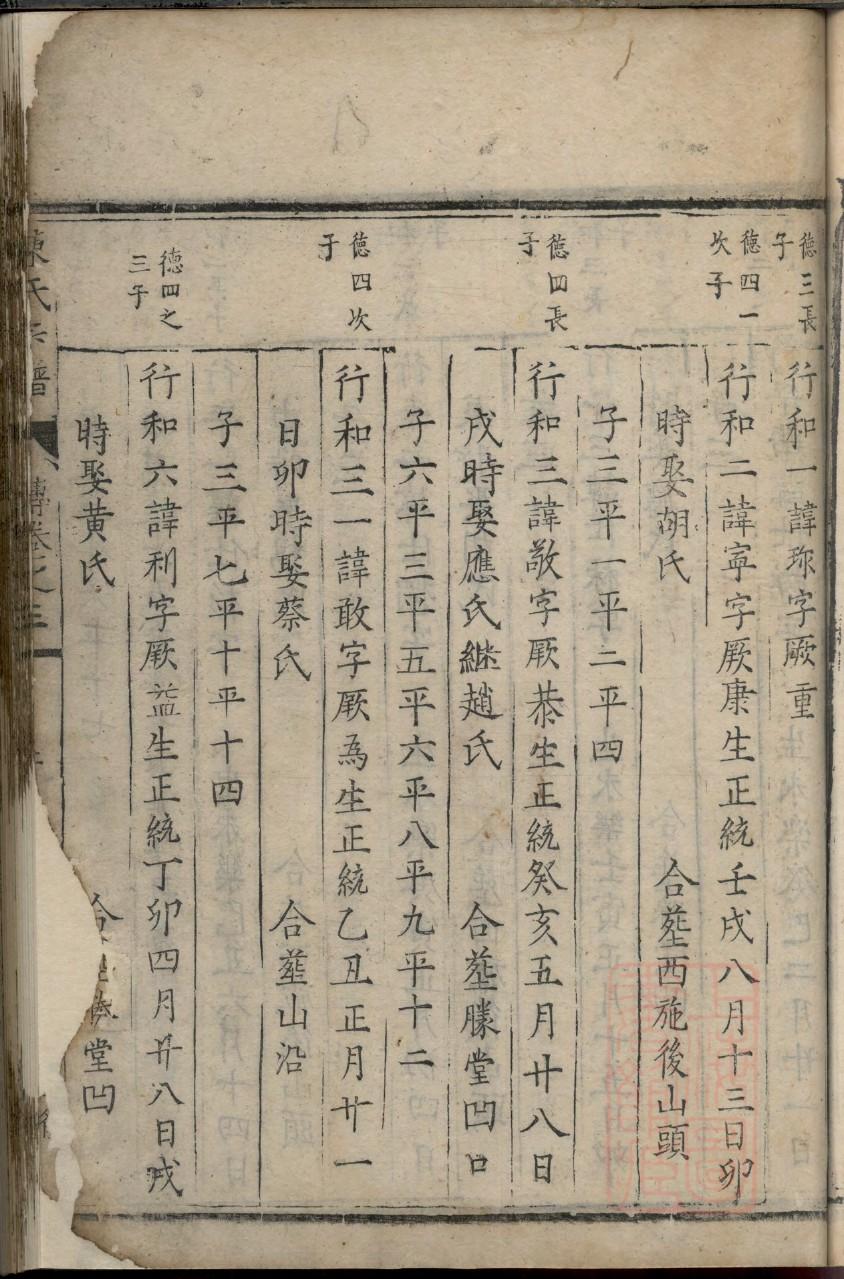 德三長
子
行和一諱珎字厥重
德四一
次子
行和二諱寧字厥康生正統壬戌八月十三日卯
時娶胡氏 合塟西施後山頭
子三平一平二平四
德四長
子
行和三諱敬字厥恭生正統癸亥五月廿八日
戌時娶應氏継趙氏 合塟塍堂凹口
子六平三平五平六平八平九平十二
德四次
子
行和三一諱敢字厥為生正統乙丑正月廿一
日卯時娶蔡氏 合塟山沿
子三平七平十平十四
德四之
三子
行和六諱利字厥益生正統丁卯四月廿八日戌
時娶黄氏 堂凹
陳氏宗譜 傳卷之三